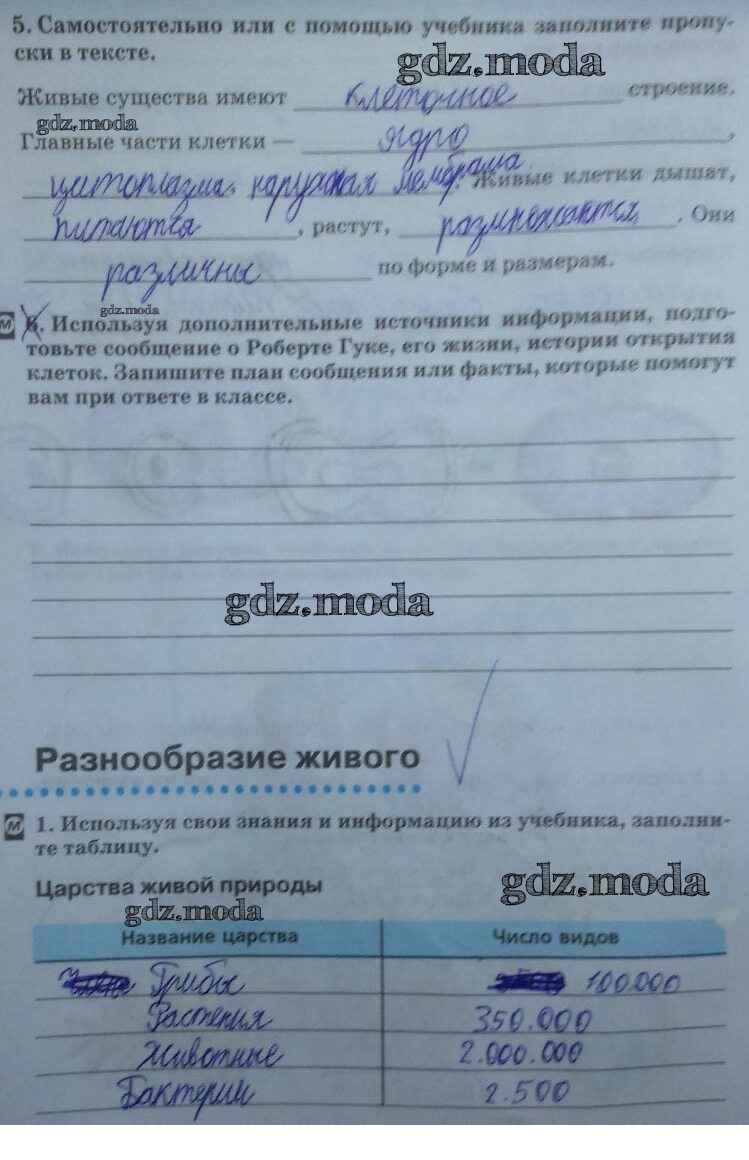 5. Самостоятельно или с помощью учебника заполните пропу-
ски в тексте.
gdz.moda
Живые существа имеют клеточное строение.
gdz.moda
Главные части клетки — ядро,
цитоплазма, наружная мембрама. Живые клетки дышат,
питаются, растут, размножаются. Они
различны по форме и размерам.
gdz.moda
М 6. Используя дополнительные источники информации, подго-
товьте сообщение о Роберте Гуке, его жизни, истории открытия
клеток. Запишите план сообщения или факты, которые помогут
вам при ответе в классе.
gdz.moda
Разнообразие живого
М 1. Используя свои знания и информацию из учебника, заполни-
те таблицу.
Царства живой природы
gdz.moda
gdz.moda
Название царства Число видов
Грибы 100.000
Растения 350.000
Животные 2.000.000
Бактерии 2.500